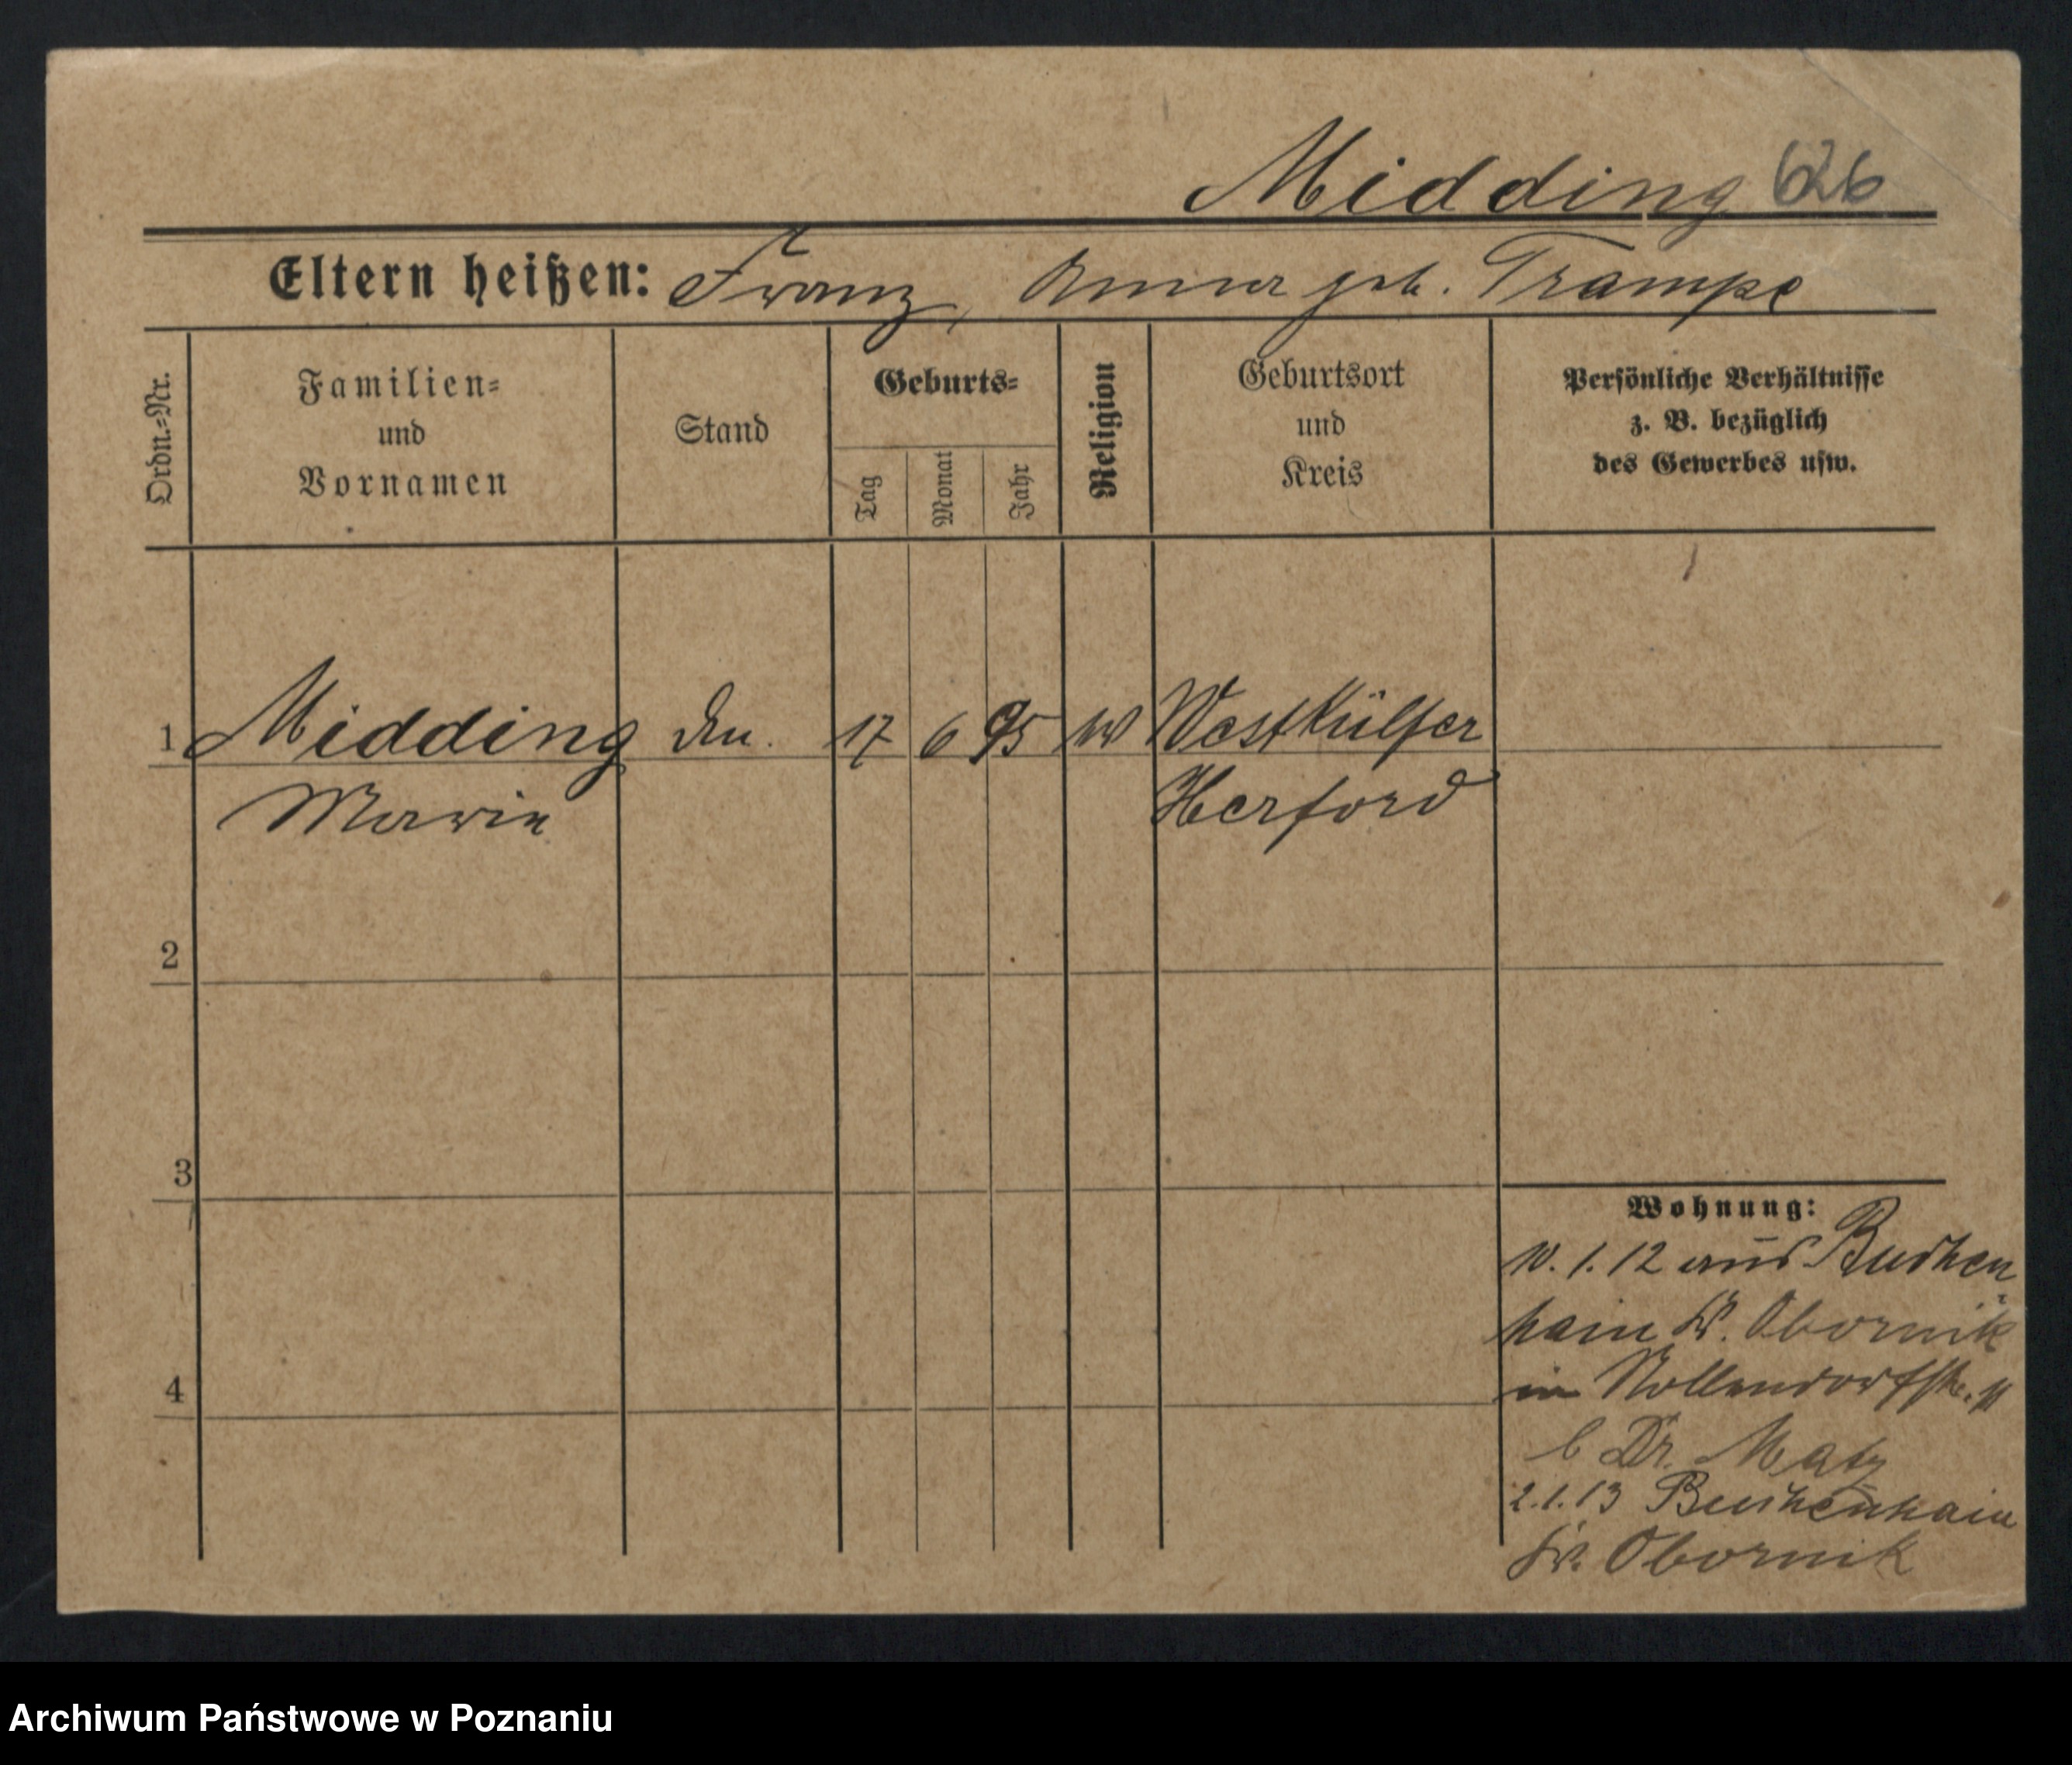 Midding 626
Eltern heißen: Franz, Anna geb. Trampe
Ordn.=Nr.
Familien=
und
Vornamen
Stand
Geburts=
Tag
Monat
Jahr
Religion
Geburtsort
und
Kreis
Persönliche Verhältnisse
z. B. bezüglich
des Gewerbes usw.
1 Midding 17 6 95 Westkilfer
Marie Herford
2
3
4
Wohnung:
10.1.12 aus Buchen
hain Kr. Obornik
in Nollendorfstr.
b Dr. Matz
2.1.13 Buchenhain
Kr. Obornik
Archiwum Państwowe w Poznaniu